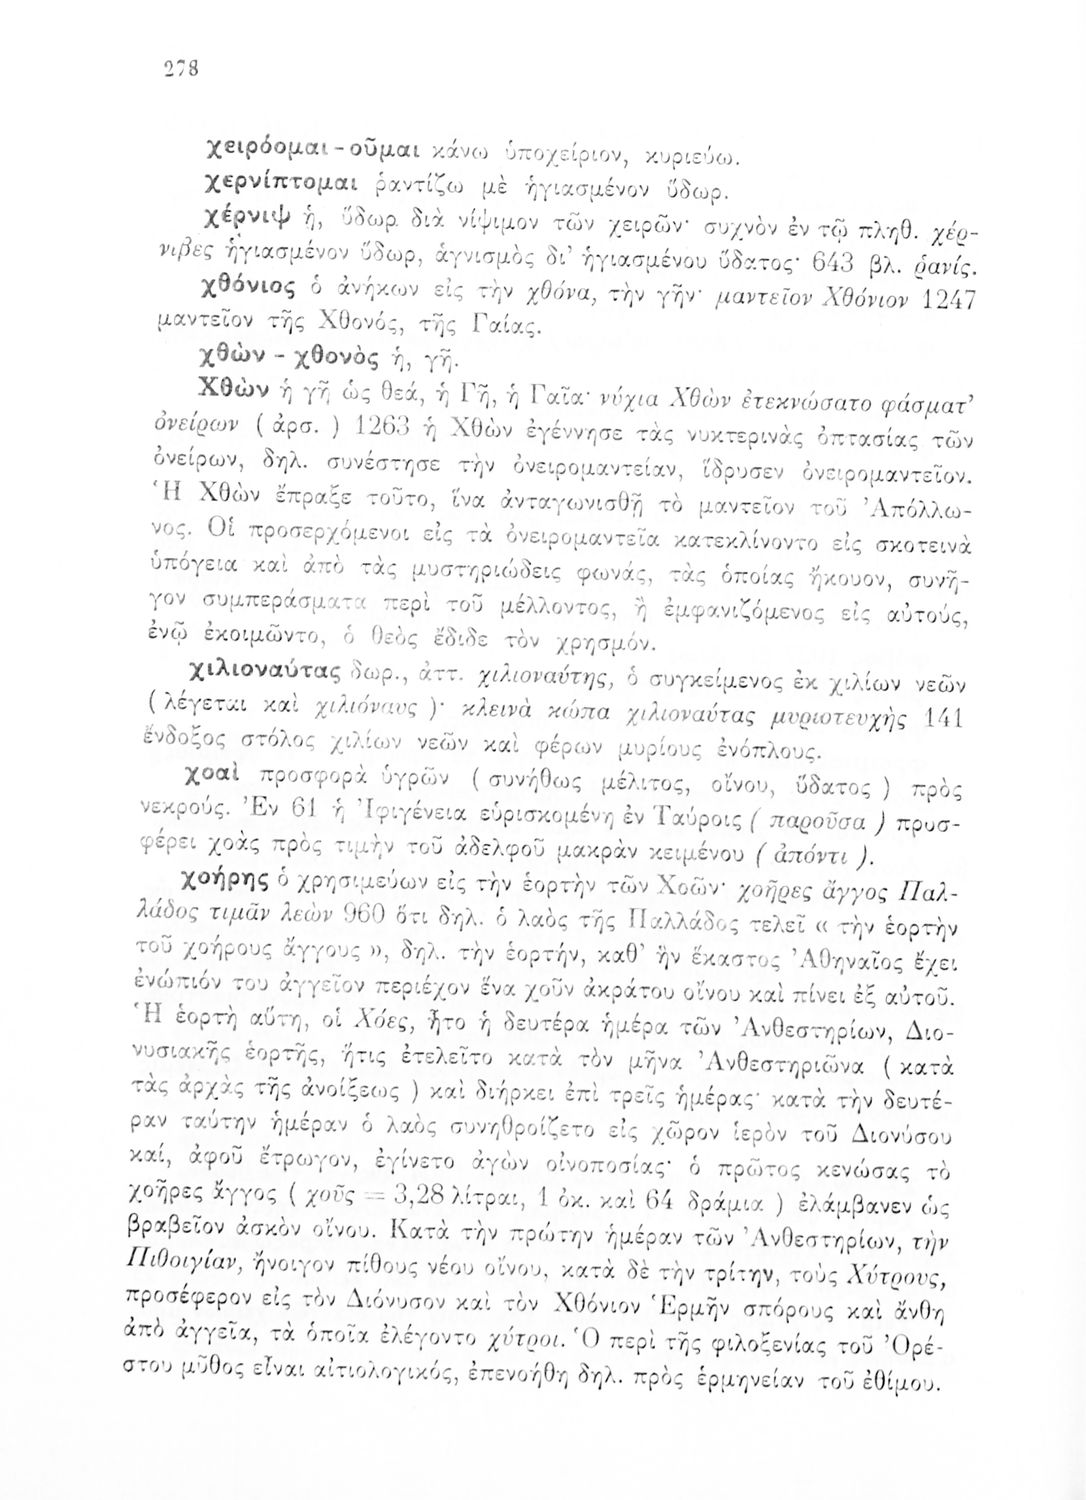 278
χειρόομαι - οῦμαι κάνω ὑποχείριον, κυριεύω.
χερνίπτομαι ῥαντίζω μὲ ἡγιασμένον ὕδωρ.
χέρνιψ ἡ, ὕδωρ διὰ νίψιμον τῶν χειρῶν· συχνὸν ἐν τῷ πληθ. χέρ-
νιβες ἡγιασμένον ὕδωρ, ἁγνισμὸς δι’ ἡγιασμένου ὕδατος· 643 βλ. ῥανίς.
χθόνιος ὁ ἀνήκων εἰς τὴν χθόνα, τὴν γῆν· μαντεῖον Χθόνιον 1247
μαντεῖον τῆς Χθονός, τῆς Γαίας.
χθὼν - χθονὸς ἡ, γῆ.
Χθὼν ἡ γῆ ὡς θεά, ἡ Γῆ, ἡ Γαῖα· νύχια Χθὼν ἐτεκνώσατο φάσματ’
ὀνείρων ( ἀρσ. ) 1263 ἡ Χθὼν ἐγέννησε τὰς νυκτερινὰς ὀπτασίας τῶν
ὀνείρων, δηλ. συνέστησε τὴν ὀνειρομαντείαν, ἵδρυσεν ὀνειρομαντεῖον.
Ἡ Χθὼν ἔπραξε τοῦτο, ἵνα ἀνταγωνισθῇ τὸ μαντεῖον τοῦ Ἀπόλλω-
νος. Οἱ προσερχόμενοι εἰς τὰ ὀνειρομαντεῖα κατεκλίνοντο εἰς σκοτεινὰ
ὑπόγεια καὶ ἀπὸ τὰς μυστηριώδεις φωνάς, τὰς ὁποίας ἤκουον, συνῆ-
γον συμπεράσματα περὶ τοῦ μέλλοντος, ἢ ἐμφανιζόμενος εἰς αὐτούς,
ἐνῷ ἐκοιμῶντο, ὁ θεὸς ἔδιδε τὸν χρησμόν.
χιλιοναύτας δωρ., ἀττ. χιλιοναύτης, ὁ συγκείμενος ἐκ χιλίων νεῶν
( λέγεται καὶ χιλιόναυς )· κλεινὰ κώπα χιλιοναύτας μυριοτευχὴς 141
ἔνδοξος στόλος χιλίων νεῶν καὶ φέρων μυρίους ἐνόπλους.
χοαὶ προσφορὰ ὑγρῶν ( συνήθως μέλιτος, οἴνου, ὕδατος ) πρὸς
νεκρούς. Ἐν 61 ἡ Ἰφιγένεια εὑρισκομένη ἐν Ταύροις ( παροῦσα ) προσ-
φέρει χοὰς πρὸς τιμὴν τοῦ ἀδελφοῦ μακρὰν κειμένου ( ἀπόντι ).
χοήρης ὁ χρησιμεύων εἰς τὴν ἑορτὴν τῶν Χοῶν· χοῆρες ἄγγος Παλ-
λάδος τιμᾶν λεὼν 960 ὅτι δηλ. ὁ λαὸς τῆς Παλλάδος τελεῖ « τὴν ἑορτὴν
τοῦ χοήρους ἄγγους », δηλ. τὴν ἑορτήν, καθ’ ἣν ἕκαστος Ἀθηναῖος ἔχει
ἐνώπιόν του ἀγγεῖον περιέχον ἕνα χοῦν ἀκράτου οἴνου καὶ πίνει ἐξ αὐτοῦ.
Ἡ ἑορτὴ αὕτη, οἱ Χόες, ἦτο ἡ δευτέρα ἡμέρα τῶν Ἀνθεστηρίων, Διο-
νυσιακῆς ἑορτῆς, ἥτις ἐτελεῖτο κατὰ τὸν μῆνα Ἀνθεστηριῶνα ( κατὰ
τὰς ἀρχὰς τῆς ἀνοίξεως ) καὶ διήρκει ἐπὶ τρεῖς ἡμέρας· κατὰ τὴν δευτέ-
ραν ταύτην ἡμέραν ὁ λαὸς συνηθροίζετο εἰς χῶρον ἱερὸν τοῦ Διονύσου
καί, ἀφοῦ ἔτρωγον, ἐγίνετο ἀγὼν οἰνοποσίας· ὁ πρῶτος κενώσας τὸ
χοῆρες ἄγγος ( χοῦς = 3,28 λίτραι, 1 ὀκ. καὶ 64 δράμια ) ἐλάμβανεν ὡς
βραβεῖον ἀσκὸν οἴνου. Κατὰ τὴν πρώτην ἡμέραν τῶν Ἀνθεστηρίων, τὴν
Πιθοιγίαν, ἤνοιγον πίθους νέου οἴνου, κατὰ δὲ τὴν τρίτην, τοὺς Χύτρους,
προσέφερον εἰς τὸν Διόνυσον καὶ τὸν Χθόνιον Ἑρμῆν σπόρους καὶ ἄνθη
ἀπὸ ἀγγεῖα, τὰ ὁποῖα ἐλέγοντο χύτροι. Ὁ περὶ τῆς φιλοξενίας τοῦ Ὀρέ-
στου μῦθος εἶναι αἰτιολογικός, ἐπενοήθη δηλ. πρὸς ἑρμηνείαν τοῦ ἐθίμου.